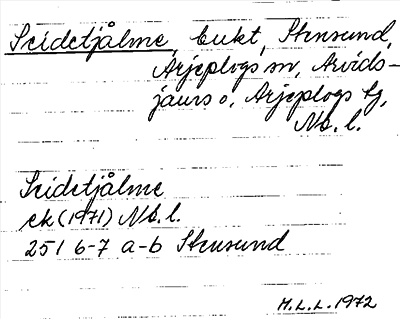 Seidetjålme, bukt, Stensund,
Arjeplogs sn, Arvids-
jaurs o, Arjeplogs tg,
Nb. l.
Seidetjålme
ek (1971) Nb. l.
25 I 6-7 a-b Stensund
M.L.L. 1972